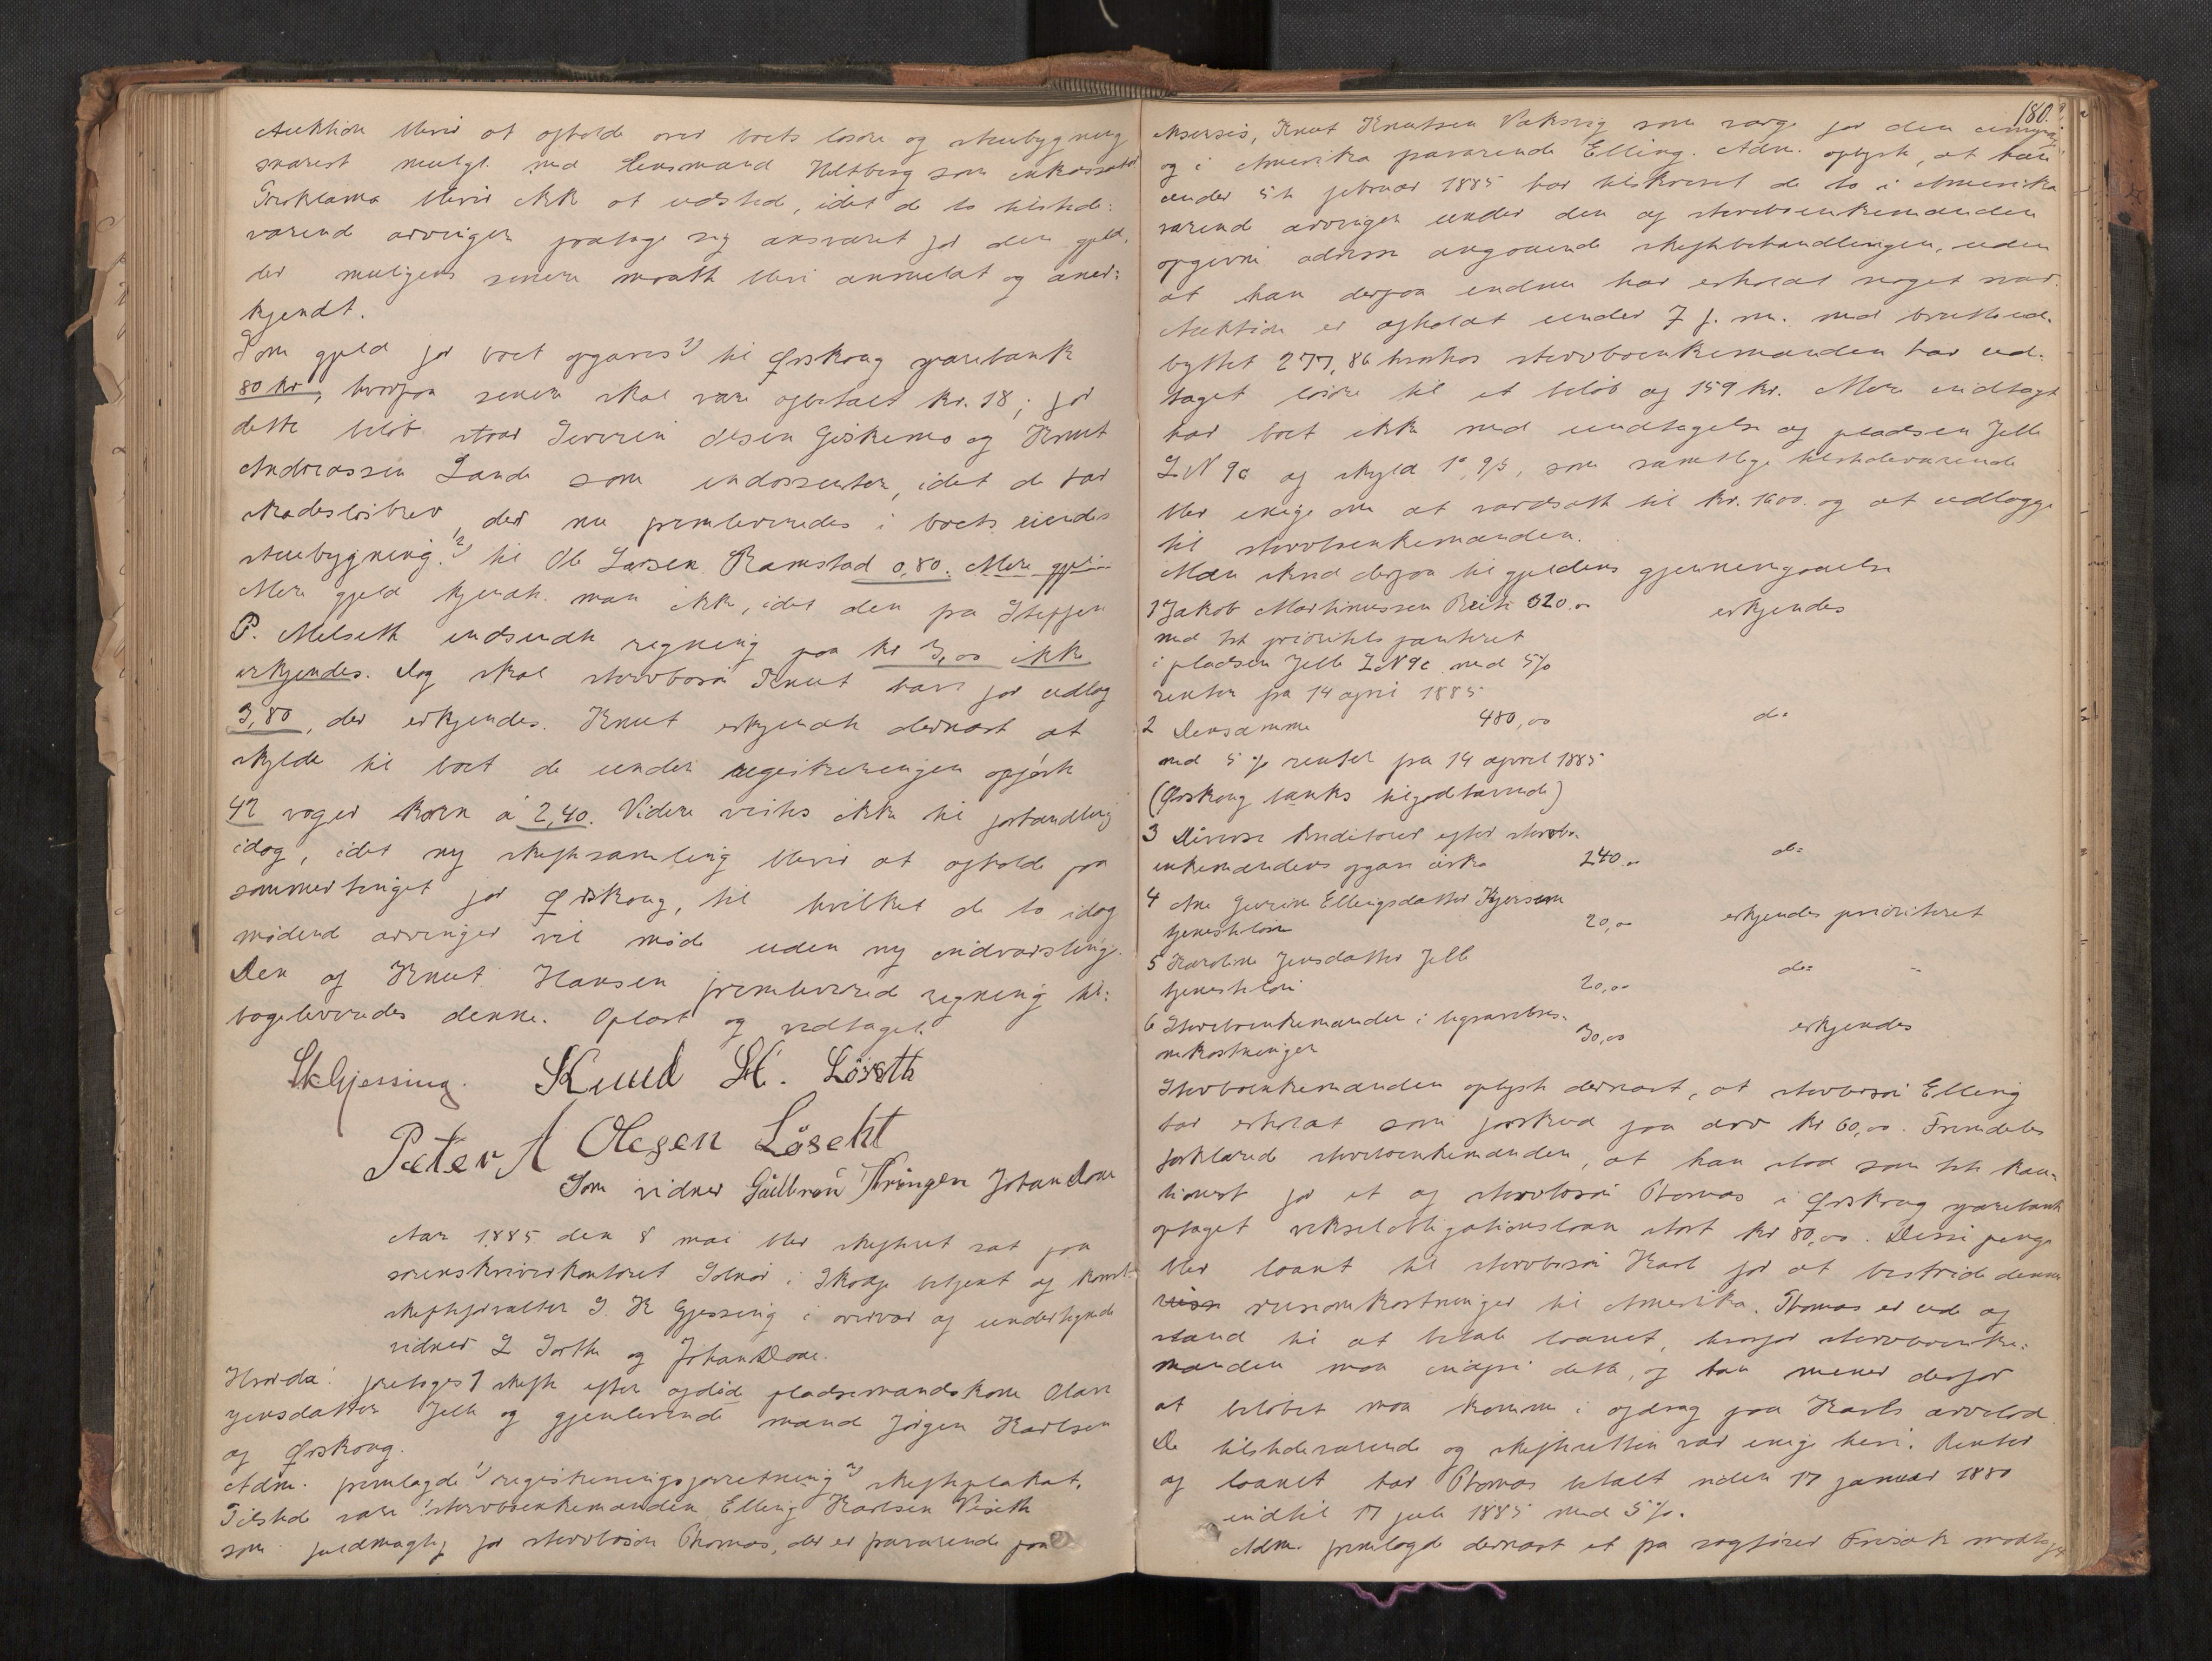 Auktion bliver at afholde over boets løsøre og stuebygning
snarest muligt med lensmand Heltberg som inkassator
Proklama bliver ikke at udstede, idet de to tilstede:
værende arvinger paatage sig ansvaret for den gjeld,
der muligens senere maatte blive anmeldt og aner:
kjendt.
Som gjeld for boet opgaves 1) til Ørskoug sparebank
80 kr, hvorpaa senere skal være afbetalt kr. 18; for
dette beløb staar Severin Olsen Giskemo og Knut
Andreassen Lande som endossenter, idet de har
skadesløsbrev, der nu fremleveredes i boets eiende
stuebygning. 2) til Ole Larsen Ramstad 0,80. Mere gjeld
Mere gjeld kjendte man ikke, idet den fra Steffen
P. Melseth indsendte regning paa kr 3,00 ikke
erkjendes. Dog skal stervbosøn Knut have for udlæg
3,80, der erkjendes. Knut erkjendte dernæst at
skylde til boet de under registreringen opførte
42 voger korn á 2,40. Videre vistes ikke til forhandling
idag, idet ny skiftesamling bliver at afholde paa
sommertinget for Ørskoug, til hvilket de to idag
mødende arvinger vil møde uden ny indvarsling.
Den af Knut Hansen fremleverede regning til:
bageleveredes denne. Oplæst og vedtaget.
Skhjessing. Knud H. Løseth
Peter A Olesen Løseht
Som vidner Johan Aone
Aar 1885 den 8 mai blev skifteret sat paa
sorenskriverkontoret Solnør i Skodje betjent af konst.
skifteforvalter S. K Gjessing i overvær af undertegnede
vidner L Sorthe og Johan Aone.
Hvorda: foretoges 1 skifte efter afdøde pladsemandskone Olave
Jensdatter Jelle og gjenlevende mand Jørgen Karlsen
af Ørskoug.
Adm. fremlagde 1) registreringsforretning 2) skifteplakat.
Tilstede vare: stervboenkemanden, Elling Karlsen Viseth
som fuldmægtig for stervbosøn Thomas, der er fraværende paa
180.
eksersis, Knut Knutsen Vaksvig som værge for den umyndige
og i Amerika fraværende Elling. Adm. oplyste, at han
under 5te februar 1885 har tilskrevet de to i Amerika
værende arvinger under den af stervboenkemanden
opgivne adresse angaaende skiftebehandlingen, uden
at han derpaa endnu har erholdt noget svar.
Auktion er afholdt under 7 f. m. med bruttoud-
byttet 277,86 hvorhos stervboenkemanden har ud:
taget løsøre til et beløb af 159 kr. Mere indtægt
har boet ikke med undtagelse af pladsen Jelle
L N 9c af skyld 1° 9 β, som samtlige tilstedeværende
blev enige om at værdsætte til kr. 1600. og at udlægge
til stervboenkemanden.
Man skred derpaa til gjeldens gjennemgaaelse
1 Jakob Martinussen Reite 620.00 erkjendes
med 1ste prioritets panteret
i pladsen Jelle L N 9c med 5%
renter fra 14 april 1885
2 Densamme 480,00 do
med 5 % renter fra 14 april 1885
(Ørskoug banks tilgodehavende)
3 Diverse kreditorer efter stervbo-
enkemandens opgave cirka 240.00 do
4 Ane Severine Ellingsdatter Kjersem
tjenesteløn 20,00 erkjendes prioriteret
5 Karoline Jensdatter Jelle
tjenesteløn 20,00 do -
6 Stervboenkemanden i begravelses-
omkostninger 30,00 erkjendes
Stervboenkemanden oplyste dernæst, at stervbosøn Elling
har erholdt som forskud paa arv kr 60,00. Fremdeles
forklarede stervboenkemanden, at han stod som 1ste kau-
tionist for et af stervbosøn Thomas i Ørskoug sparebank
optaget vekselobligationslaan stort kr 80,00. Disse penge
blev laant til stervbosøn Karl for at bestride dennes
reiseomkostninger til Amerika. Thomas er ude af
stand til at betale laanet, hvorfor stervboenke:
manden maa indfri dette, og han mener derfor
at beløbet maa komme i afdrag paa Karls arvelod.
De tilstedeværende og skifteretten var enige heri. Renter
af laanet har Thomas betalt siden 17 januar 1880
indtil 17 juli 1885 med 5%.
Adm. fremlagde dernæst et fra sagfører Frisak modtaget